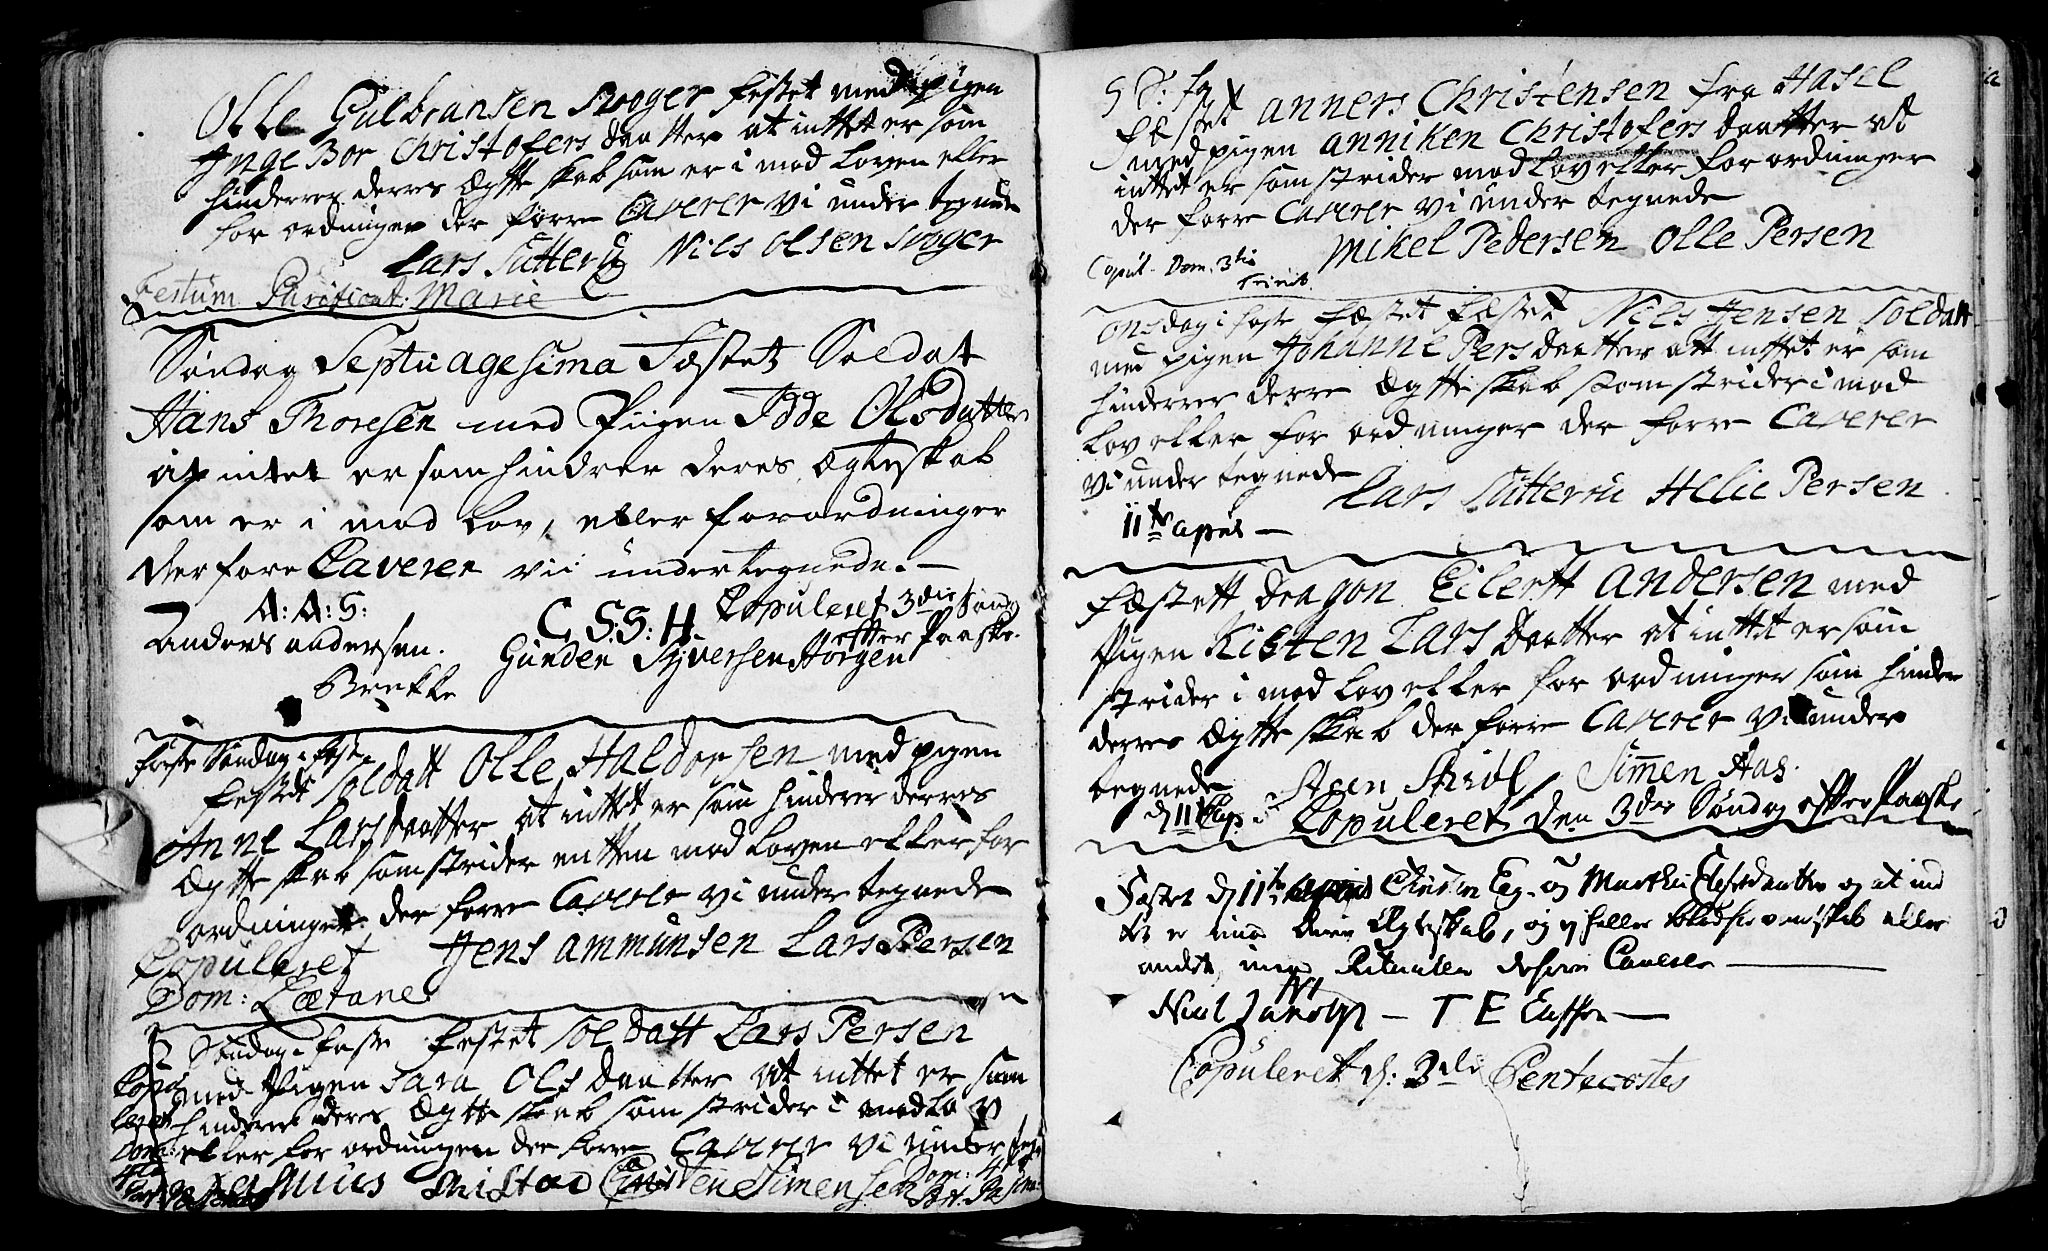 Olle Gulbransen Skoger festet med pigen
Inge Bor Christofers daatter at inttet er som
hinderrer derres Ægtte skab som er i mod Loven eller
for ordninger der forre Caverer vi under tegnede
Lars Sutterud Nils Olsen Skoger
Festum Purificat. Mariæ
Søndag Septuagesima Fæstet Soldat
Hans Thoresen med Piigen Idde Olsdatter
at intet er som hindrer deres Ægteskab
som er i mod Lov, eller forordninger
derfore Caverer vii undertegnede.
A: A: S: C. S. S: H. Copuleret 3die Sønd
Anders andersen. efter Paaske.
Gunden Syversen Horgen
Brekke
første Søndag i faste
festet soldatt Olle Haldorsen med pigen
Anne Larsdaatter at inttet er som hinderer derres
Ægtte skab som strider entten mod Loven eller for
ordninger der forre Caverer vi under tegnede
Copuleret Jens ammunsen Lars Persen
Dom: Lætare
2 Søndag i faste festet soldatt Lars Persen
med Pigen Sara Ols daatter att inttet er som
hinderer deres Ægtte skab som strider i mod Lov
eller for ordningen der forre Caverer vi under
Rasmus Christen Simensen
Dom: 4
Post. Pa
S: i fa
fæstet anners Christensen fra Hasel
med pigen anniken Christofers daatter at
inttet er som strider mod Lov eller for ordninger
der forre Caverer vi under tegnede
Mikel Pedersen Olle Persen
Copul. Dom. 3tia
Trinit.
onsdag i faste fæstet fæstet Nils Jensen soldatt
med pigen Johanne Pers daatter att inttet er som
hinderrer derre Ægtte skab som strider i mod
Lov eller for ordninger der forre Caverer
vi under tegnede
Lars Sutterru Helie Persen
11te april
fæstett dragon Eilertt andersen med
Pigen Kisten Lars daatter at inttet er som
strider i mod Lov eller for ordninger som hinder
derres Ægtte skab der forre Caverer vi under
tegnede Steen Simen Aas.
d 11 Ap Copuleret den 3die Søndag efter Paaske
Fæstet d 11te april Christen Eeg og Marthe daatter og at ind
tet er imod deris Ægteskab, og ey heller blodsforvandskab eller
andet, imod Ritualen derfore Caverer
Niel Jacobs T E
Copuleret d: 3die Pentecostes